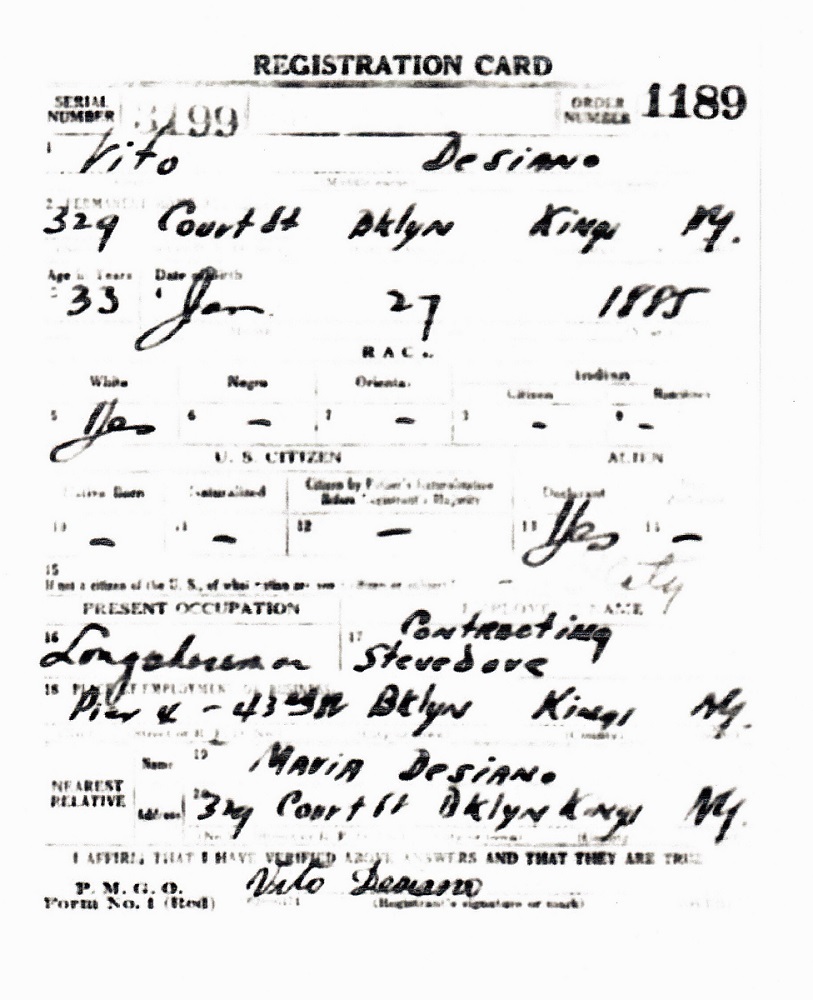 REGISTRATION CARD
SERIAL NUMBER 3199 ORDER NUMBER 1189
1 Vito Desiano
2. PERMANENT
329 Court St Bklyn Kings NY.
Age in Years Date of Birth
33 Jan 27 1885
RACE
White Negro Oriental Indian
Citizen
5 Yes 6 - 7 - 8 - 9 -
U. S. CITIZEN ALIEN
Native Born Naturalized Citizen by Father's Naturalization Before Registrant's Majority Declarant
10 - 11 - 12 - 13 Yes 14 -
15
If not a citizen of the U. S., of what nation are you a citizen or subject? Italy
PRESENT OCCUPATION EMPLOYER'S NAME
16 Longshoreman 17 Contracting Stevedore
18 PLACE OF EMPLOYMENT OR BUSINESS
Pier 4 - 43rd St Bklyn Kings NY.
NEAREST RELATIVE Name 19 Maria Desiano
Address 20 329 Court St Bklyn Kings NY.
I AFFIRM THAT I HAVE VERIFIED ABOVE ANSWERS AND THAT THEY ARE TRUE
P. M. G. O.
Form No. 1 (Red) Vito Desiano
(Registrant's signature or mark)